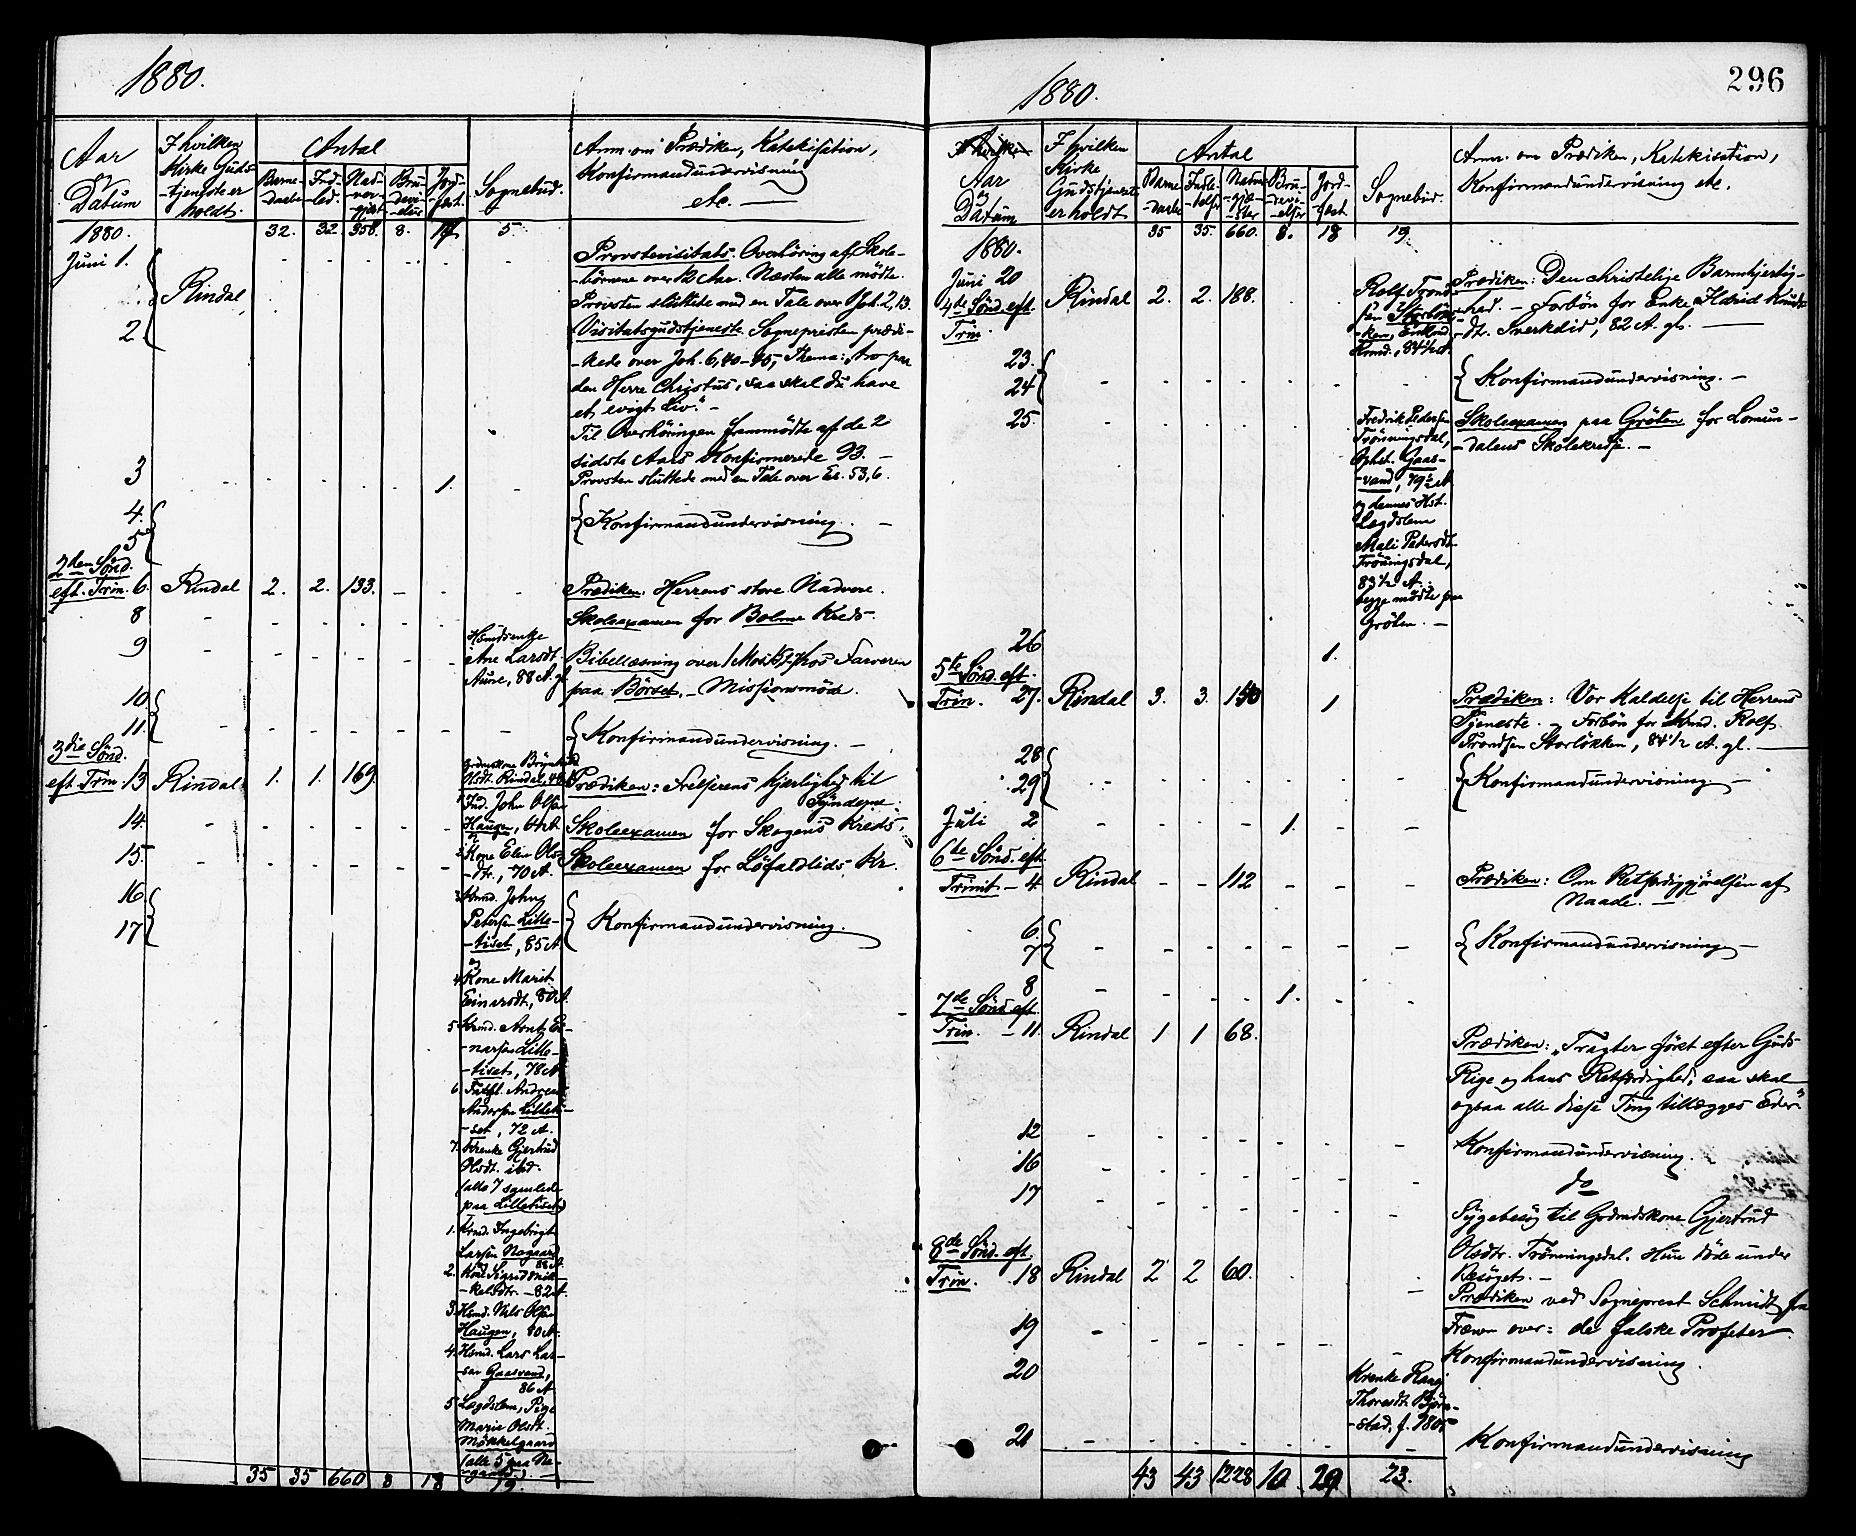 1880.
Aar
og
Datum
I hvilken
Kirke Guds-
-tjeneste er
holdt.
Antal
Barne-
daab
Ind-
led.
Nad-
ver-
gjest
Bru-
devi-
elser
Jord-
fæst.
Sognebud.
Anm. om Prædiken, Katekisation,
Konfirmandundervisning
etc. —
1880. 32. 32. 358. 8. 17. 5.
Juni 1. Rindal
Provstevisitats. Overhöring af Skole-
-börnene over 12 Aar. Næsten alle mödte.
Provsten sluttede med en Tale over Joh. 2,13.
2. Visitatsgudstjeneste. Sognepresten prædi-
-kede over Joh. 6,40-45, Thema: tro paa
den Herre Christus, saa skal du have
et evigt Liv". —
Til Overhöringen fremmödte af de 2
sidste Aars Konfirmerede 93. —
Provsten sluttede med en Tale over Es. 53,6.
3 1.
4.
5 Konfirmandundervisning. —
2den Sönd.
eft. Trin. 6. Rindal 2. 2. 133. Prædiken: Herrens store Nadvere.
8 Skoleexamen for Bolme Kreds.
9 Huusenke
Ane Larsdt.
Aune, 88 A. gl.
Bibellæsning over 1 Mos. hos Farveren
paa Börset. — Missionsmöde.
10
11. Konfirmandundervisning. —
3die Sönd.
eft. Trin. 13 Rindal 1. 1. 169. Prædiken: Frelserens Kjerlighed til
Syndere.
Olsdt. Rindal,
1 Ind. John Olsen
Haugen, 64 A.
og
14. Skoleexamen for Skogens Kreds.
2 Kone Elen Ols-
-dtr., 70 A.
15. Skoleexamen for Löfaldlids Kr.
16.
17 Konfirmandundervisning.
3 Kmd. John
Petersen Lille-
-tiset, 85 A.
og
4 Kone Marit
Einarsdt., 80 A.
5 Kmd. Arnt Ei-
-narsen Lille-
-tiset, 78 A.
6 Andreas
Andersen Lilleti-
-set, 72 A.
7. Krenke Gjertrud
Olsdt. ibd.
(alle 7 samlede
paa Lilletiset)
1. Kmd. Ingebrigt
Larsen Nogaard
88 A.
2. Kone Sigrid Mik-
-kelsdtr. — 82 A.
3. Kmd. Nils Olsen
Haugen, 80 A.
4. Kmd. Lars Lar-
-sen Gaasvand,
86 A
5 Lægdslem, Pige
Marie Olsdt.
Mökkelgaard
(alle 5 paa No-
-gaard) —
35 35 660 8 18 19.
296
1880.
Aar
og
Datum
I hvilken
Kirke
Gudstjeneste
er holdt
Antal
Barne-
daab
Indle-
delser
Nadver-
gjæ-
ster
Bru-
devi-
elser
Jord-
fæst.
Sognebud.
Anm. om Prædiken, Katekisation,
Konfirmandundervisning etc.
1880. 35 35. 660. 8. 18 19.
Juni 20
4de Sönd. eft.
Trin. Rindal 2. 2. 188.
Rolf Trond-
sen Storlök-
-ken, Enkmd.
Kmd., 84½ A.
Prædiken: Den christelige Barmhjertig-
-hed. — Forbön for Enke Ildrid Knuds-
-dt. Sverkdid, 82 A. gl. —
23.
24 Konfirmandundervisning. —
25. Fredrik Pedersen
Trönningsdal,
Ophst. Gaas-
-vand, 79½ A
og dennes Hst.
Lægdslem
Mali Pedersdt.
Trönningsdal,
83½ A.
begge mödte paa
Gröten. —
Skoleexamen paa Gröten for Lomun-
-dalens Skolekreds. —
26 1.
5te Sönd. eft.
Trin. 27. Rindal 3. 3. 150 1
Prædiken: Vor Kaldelse til Herrens
Tjeneste. — Forbön for Kmd. Rolf
Trondsen Storlökken, 84½ A. gl. —
28
29 Konfirmandundervisning. —
Juli 2 1.
6te Sönd. eft.
Trinit — 4 Rindal — — 112 Prædiken: Om Retfærdiggjörelsen af
Naade. —
6.
7 Konfirmandundervisning —
8 1.
7de Sönd. eft.
Trin. — 11. Rindal 1 1 68.
Prædiken: „Tragter först efter Guds
Rige og hans Retfærdighed, saa skal
ogsaa alle disse Ting tillægges Eder."
12 Konfirmandundervisning.
16 do
17 Sygebesög til Gaardskone Gjertrud
Olsdtr. Trönningsdal. Hun döde under
Besöget. —
8de Sönd. eft.
Trin. 18 Rindal 2 2 60.
Prædiken ved Sogneprest Schmidt fra
Frænen over: de falske Profeter
19 Konfirmandundervisning.
20 Krenke Ragi
Thoresdt. Björn-
-stad, f. 1805
21 Konfirmandundervisning
43 43 1228 10. 20 23.